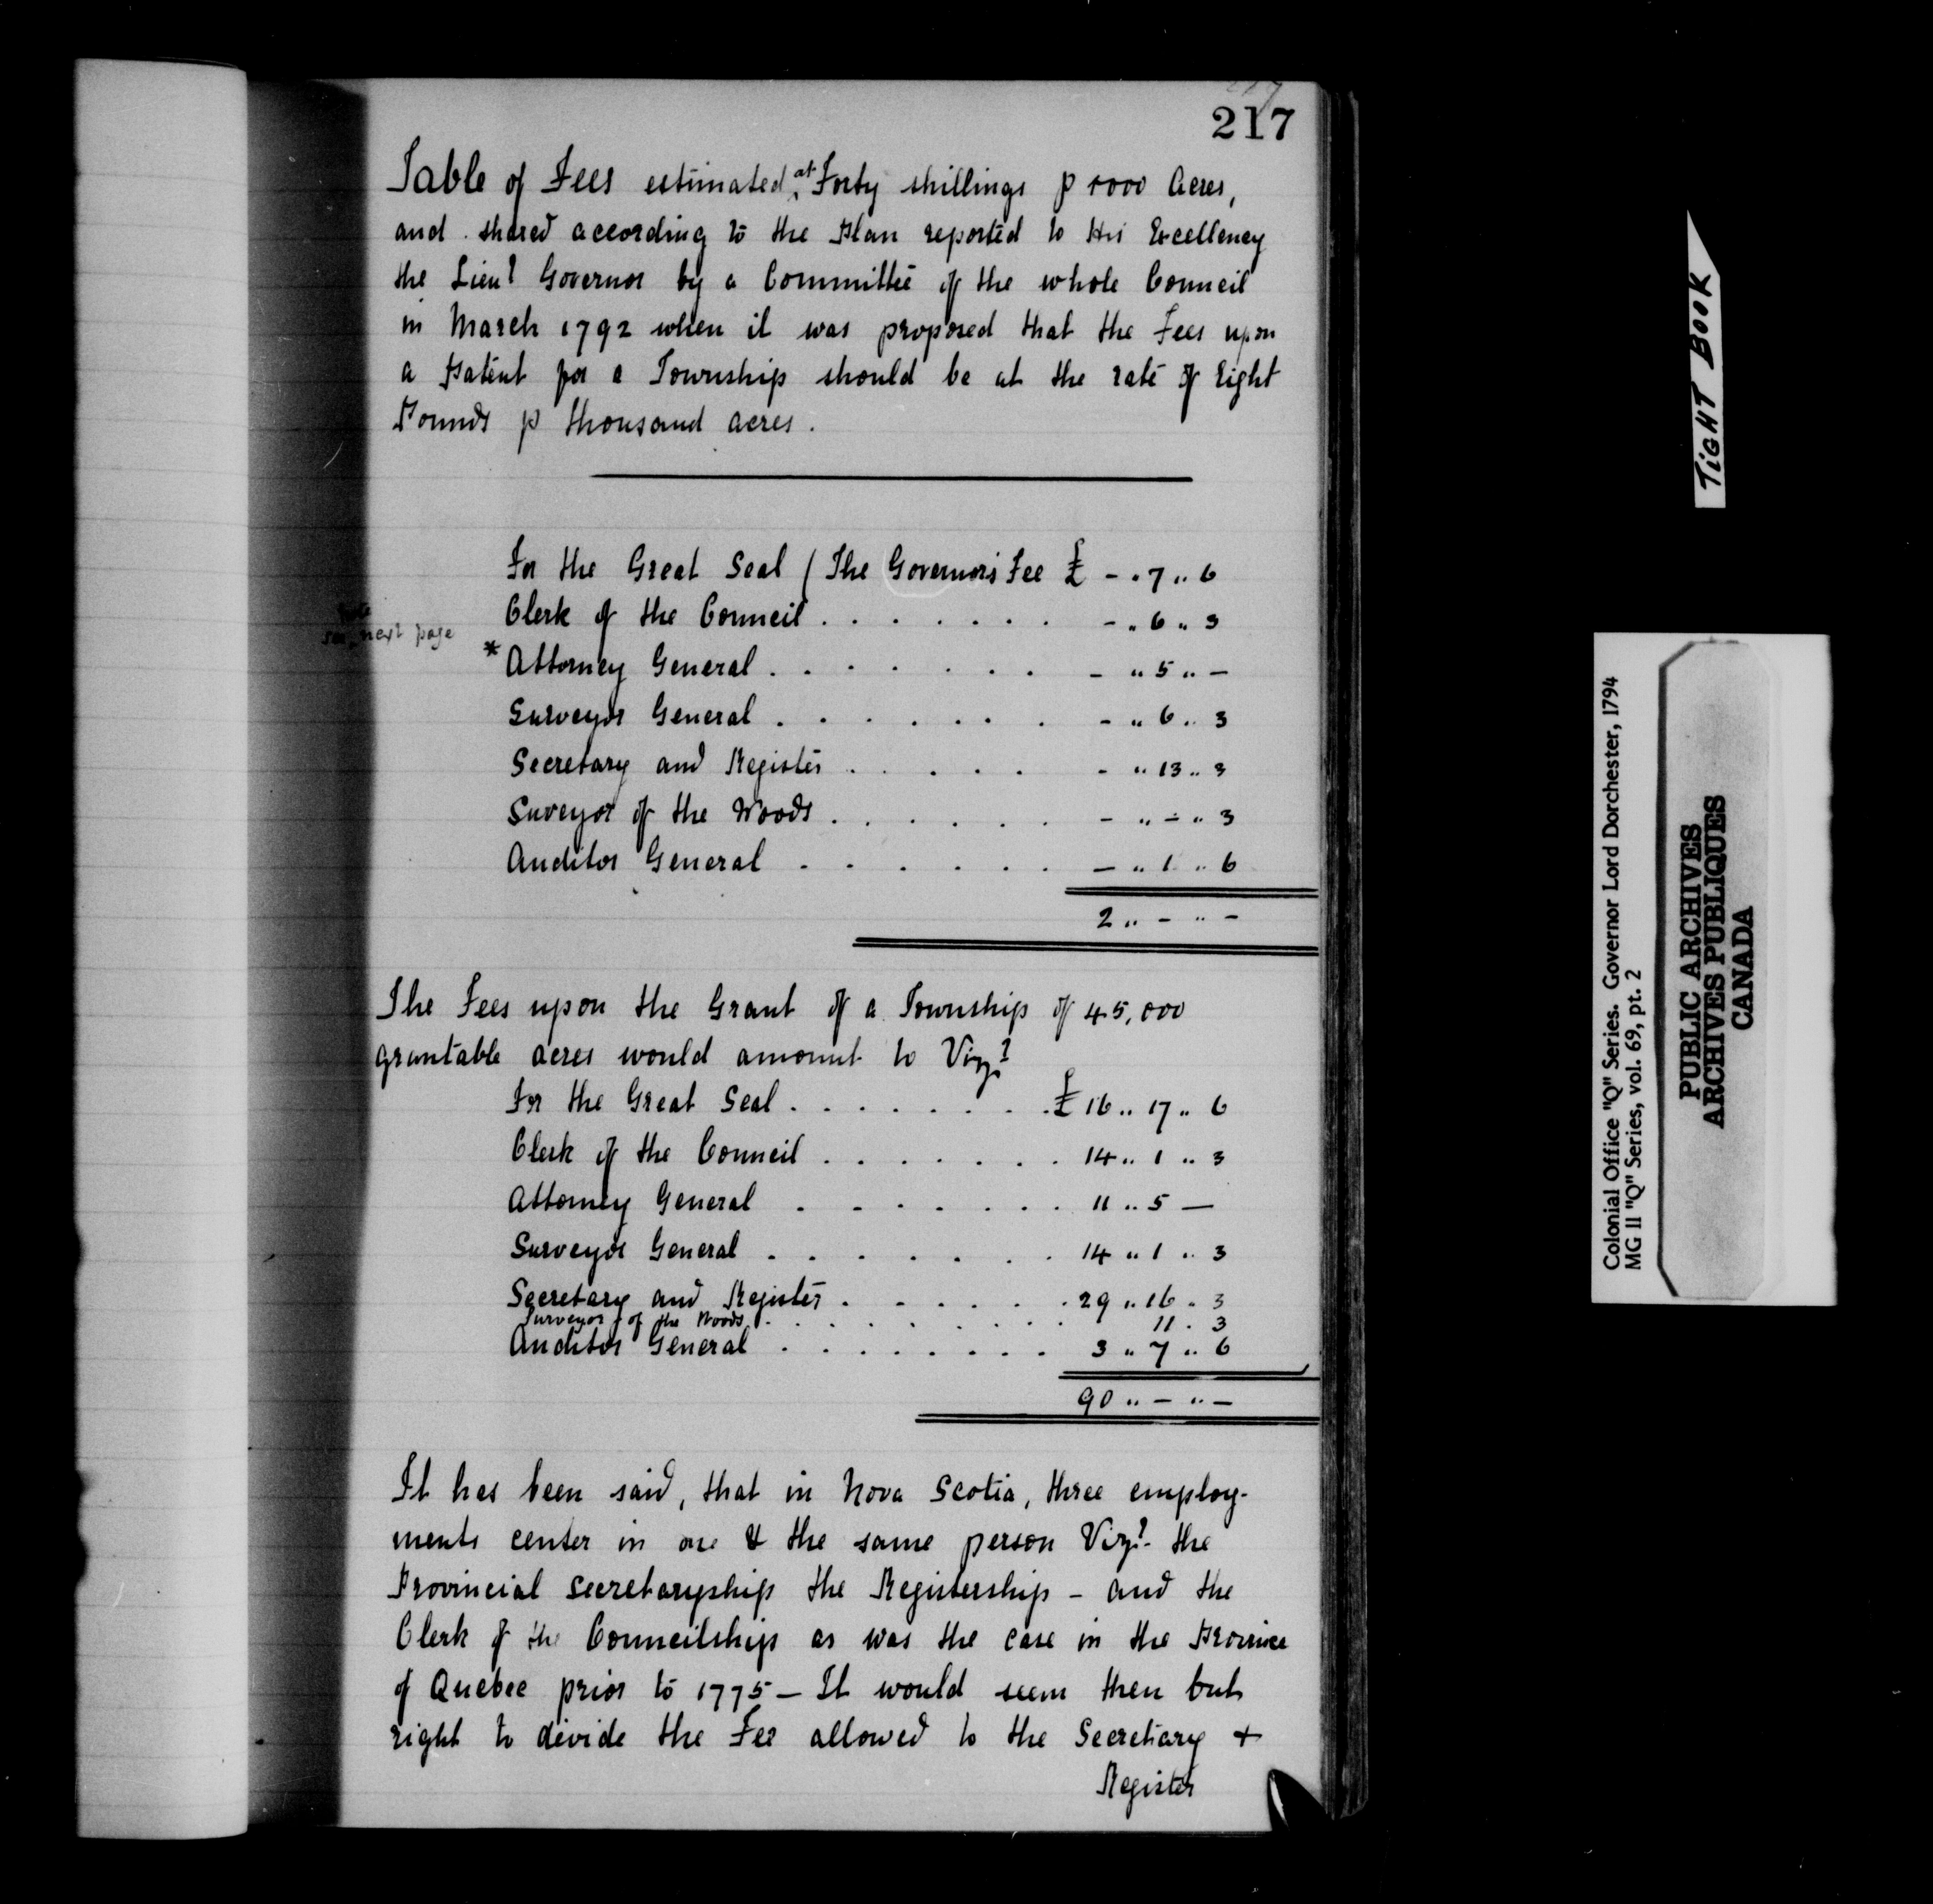 217
Table of Fees estimated at Forty shillings p 1000 Acres,
and shared according to the Plan reported to His Excellency
the Lieut Governor by a Committee of the whole Council
in March 1792 when it was proposed that the Fees upon
a Patent for a Township should be at the rate of Eight
Pounds p thousand acres.
For the Great Seal (The Governor's Fee £ - " 7 " 6
Clerk of the Council . . . . . . . - " 6 " 3
see next page
* Attorney General . . . . . . . - " 5 " -
Surveyor General . . . . . . . - " 6 " 3
Secretary and Register . . . . . - " 13 " 3
Suveyor of the Woods . . . . . . - " - " 3
Auditor General . . . . . . - " 1 " 6
2 " - " -
The Fees upon the Grant of a Township of 45,000
grantable acres would amount to Vizt
For the Great Seal . . . . . . . £ 16 " 17 " 6
Clerk of the Council . . . . . . 14 " 1 " 3
Attorney General . . . . . . . 11 " 5 —
Surveyor General . . . . . . . 14 " 1 " 3
Secretary and Register . . . . . . 29 " 16 " 3
Surveyor of the Woods . . . . . . . . 11 . 3
Auditor General . . . . . . . . 3 " 7 " 6
90 " - " -
It has been said, that in Nova Scotia, three employ-
ments center in one & the same person Vizt - the
Provincial secretaryship the Registership - and the
Clerk of the Councilship as was the case in the Province
of Quebec prior to 1775 — It would seem then but
right to divide the Fee allowed to the Secretary +
Register
TIGHT BOOK
Colonial Office "Q" Series. Governor Lord Dorchester, 1794
MG 11 "Q" Series, vol. 69, pt. 2
PUBLIC ARCHIVES
ARCHIVES PUBLIQUES
CANADA